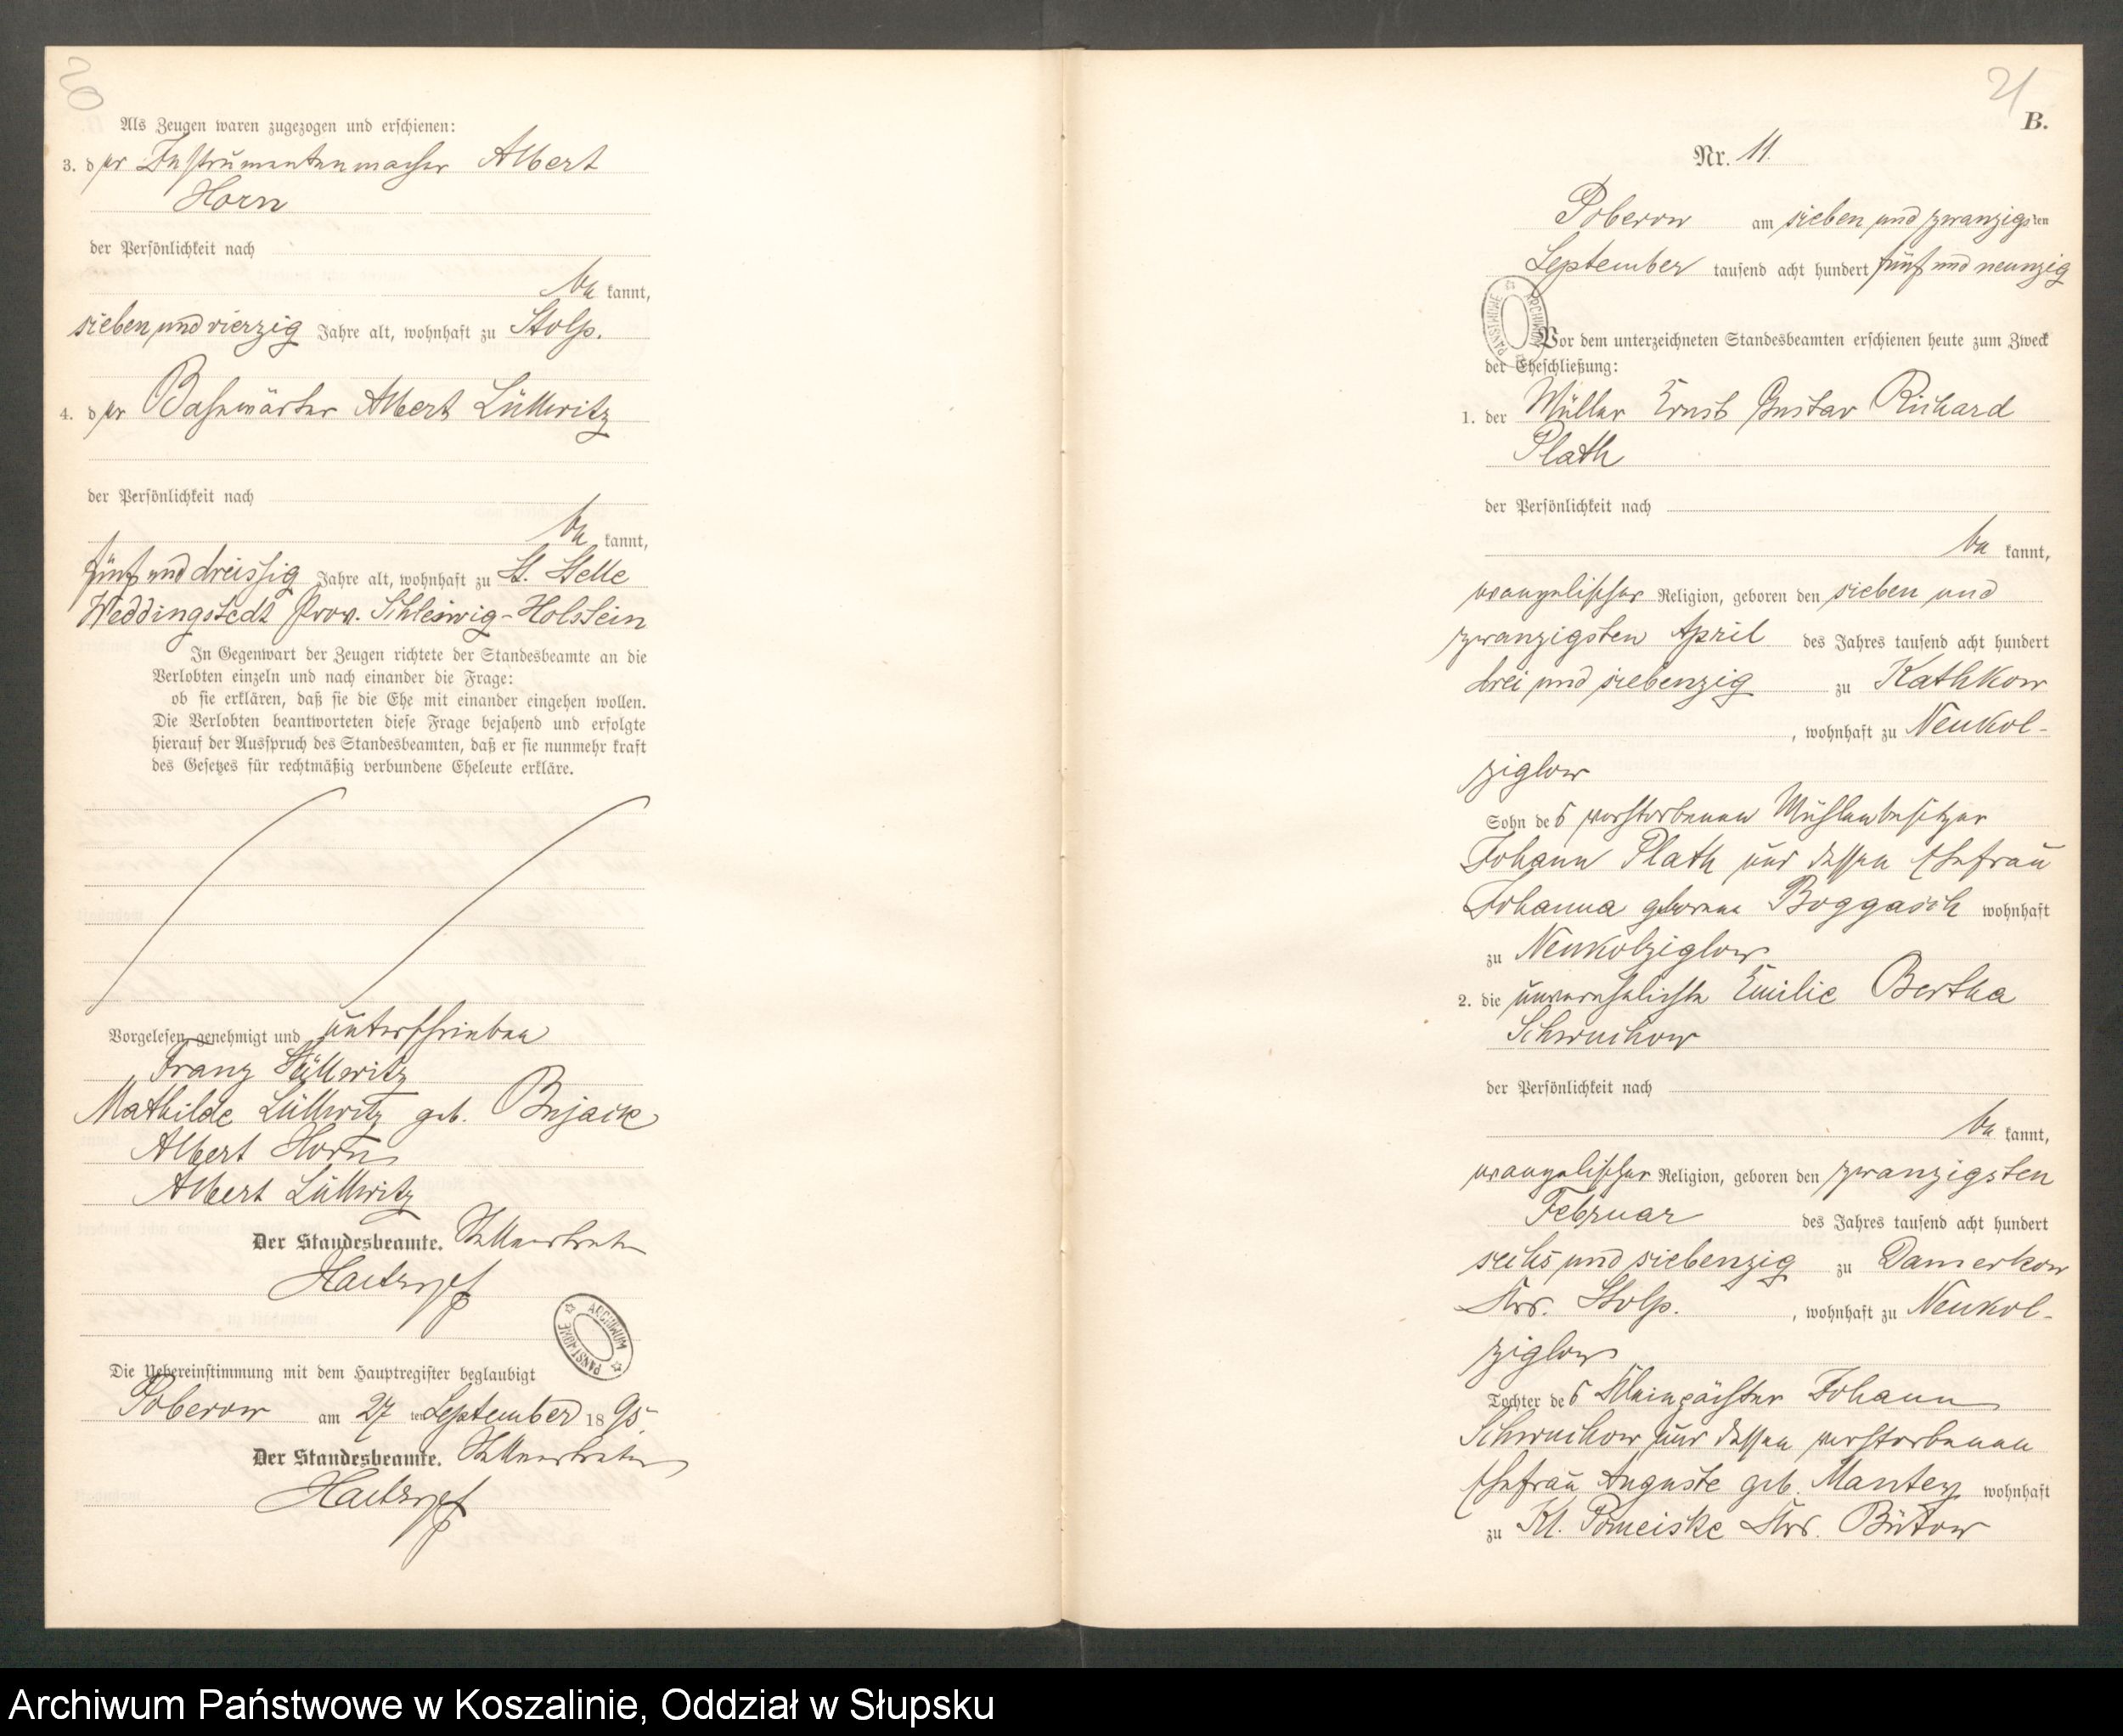 20
Als Zeugen waren zugezogen und erschienen:
3. der Instrumentenmacher Albert
Horn
der Persönlichkeit nach
be kannt,
sieben und vierzig Jahre alt, wohnhaft zu Stolp.
4. der Bahnwärter Albert Lüllwitz
der Persönlichkeit nach
be kannt,
fünf und dreissig Jahre alt, wohnhaft zu St. Stelle
Weddingstedt Prov. Schleswig-Holstein
In Gegenwart der Zeugen richtete der Standesbeamte an die
Verlobten einzeln und nach einander die Frage:
ob sie erklären, daß sie die Ehe mit einander eingehen wollen.
Die Verlobten beantworteten diese Frage bejahend und erfolgte
hierauf der Ausspruch des Standesbeamten, daß er sie nunmehr kraft
des Gesetzes für rechtmäßig verbundene Eheleute erkläre.
Vorgelesen, genehmigt und unterschrieben
Franz Lüllwitz
Mathilde Lüllwitz geb. Bujack
Albert Horn
Albert Lüllwitz
Der Standesbeamte. Stellvertreter
ARCHIWUM PAŃSTWOWE
Die Uebereinstimmung mit dem Hauptregister beglaubigt
Poberow am 27 ten September 18 95.
Der Standesbeamte. Stellvertreter
21
B.
Nr. 11.
Poberow am sieben und zwanzigsten
September tausend acht hundert fünf und neunzig
ARCHIWUM PAŃSTWOWE
Vor dem unterzeichneten Standesbeamten erschienen heute zum Zweck
der Eheschließung:
1. der Müller Ernst Gustav Richard
Plath
der Persönlichkeit nach
be kannt,
evangelischer Religion, geboren den sieben und
zwanzigsten April des Jahres tausend acht hundert
drei und siebenzig zu Kathkow
, wohnhaft zu Neukol-
ziglow
Sohn des verstorbenen Mühlenbesitzer
Johann Plath und dessen Ehefrau
Johanna geborene Boggasch wohnhaft
zu Neukolziglow
2. die unverehelichte Emilie Bertha
Schwuchow
der Persönlichkeit nach
be kannt,
evangelischer Religion, geboren den zwanzigsten
Februar des Jahres tausend acht hundert
sechs und siebenzig zu Damerkow
Krs. Stolp. , wohnhaft zu Neukol-
ziglow
Tochter des Kleinpächter Johann
Schwuchow und dessen verstorbenen
Ehefrau Auguste geb. Mantey wohnhaft
zu Kl. Pomeiske Krs. Bütow
Archiwum Państwowe w Koszalinie, Oddział w Słupsku